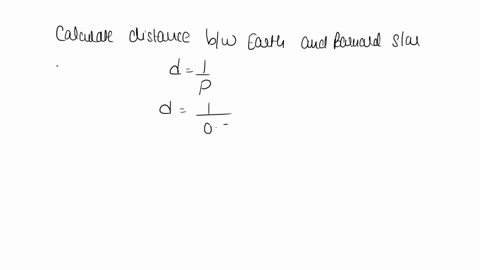 Calculate distance b/w Earth and Barnard star
d = 1/p
d = 1/0.